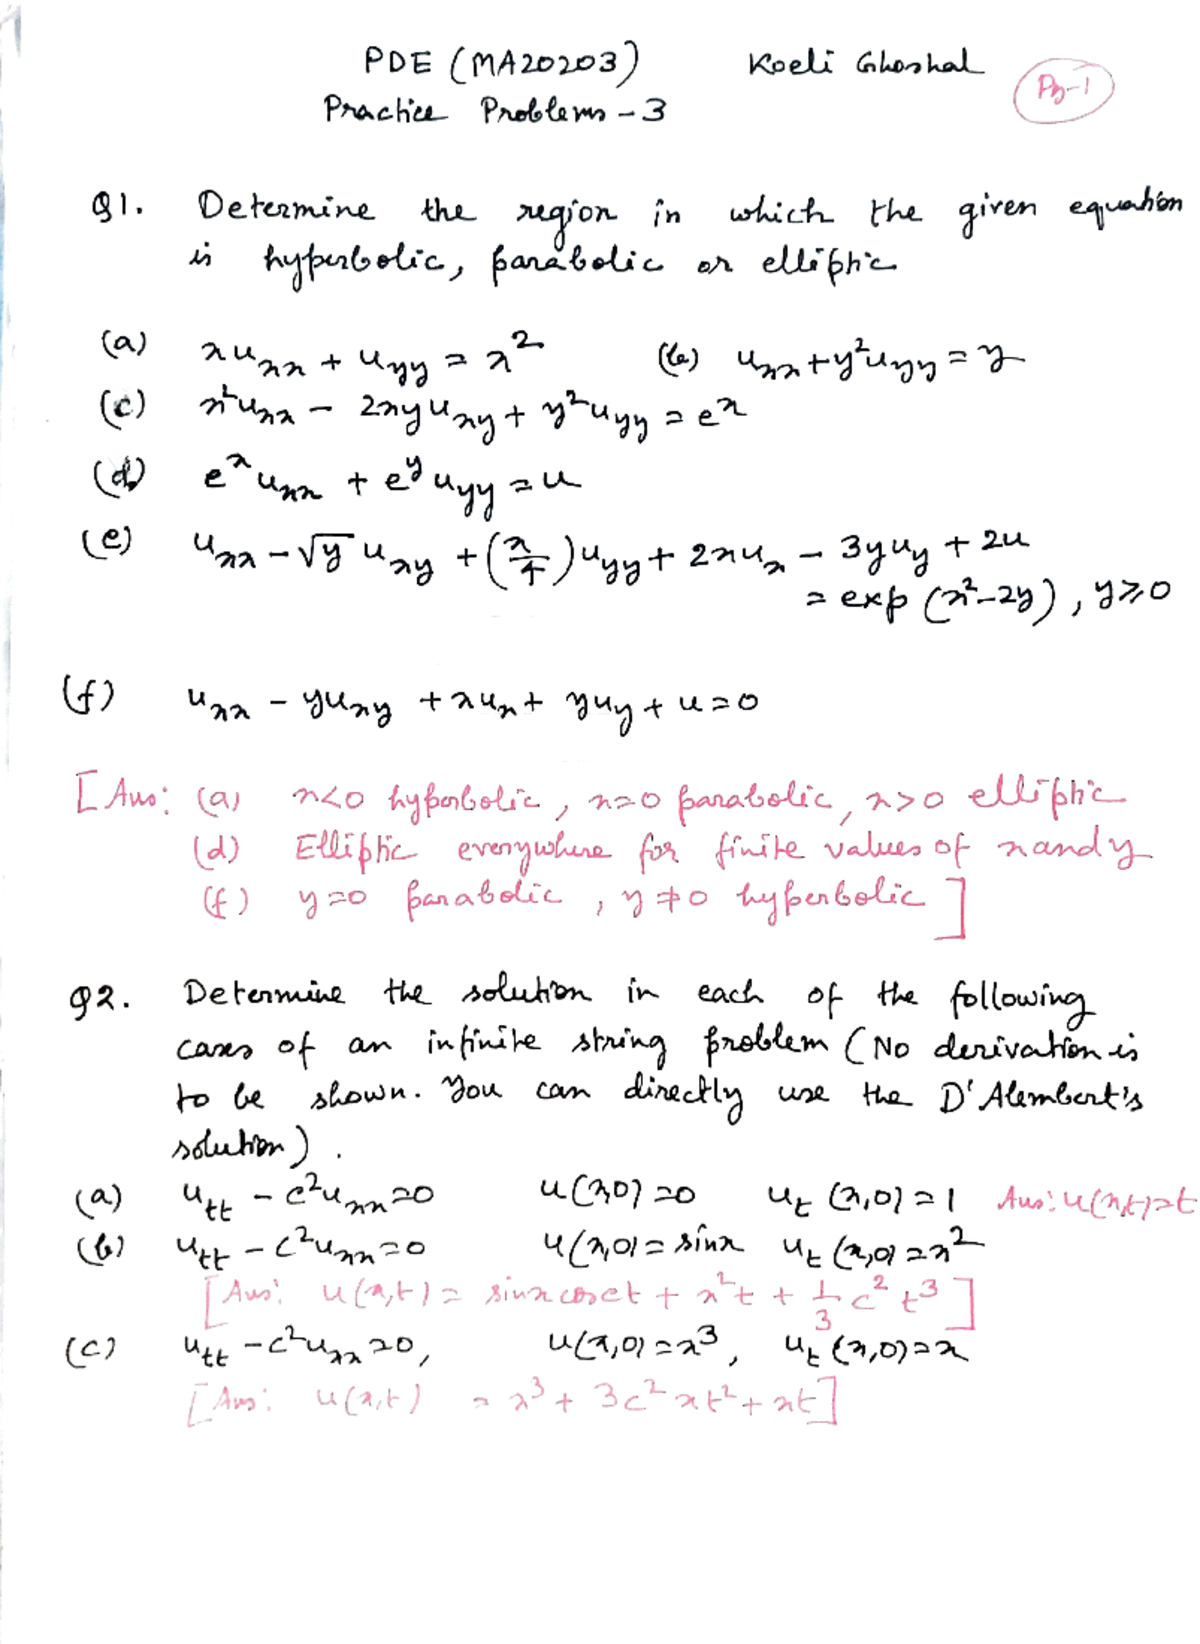 PDE (MA20203) Koeli Ghoshal
Pg-1
Practice Problems - 3
Q1. Determine the region in which the given equation
is hyperbolic, parabolic or elliptic
(a) xu_xx + u_yy = x² (b) u_xx + y²u_yy = y
(c) x²u_xx - 2xyu_xy + y²u_yy = e^x
(d) e^x u_xx + e^y u_yy = u
(e) u_xx - √y u_xy + (x/4)u_yy + 2xu_x - 3yu_y + 2u
= exp (x²-2y), y≥0
(f) u_xx - yu_xy + xu_x + yu_y + u = 0
[Ans: (a) x<0 hyperbolic, x=0 parabolic, x>0 elliptic
(d) Elliptic everywhere for finite values of x and y
(f) y=0 parabolic, y≠0 hyperbolic]
Q2. Determine the solution in each of the following
cases of an infinite string problem (No derivation is
to be shown. You can directly use the D'Alembert's
solution).
(a) u_tt - c²u_xx = 0 u(x,0) = 0 u_t (x,0) = 1 Ans: u(x,t)=t
(b) u_tt - c²u_xx = 0 u(x,0) = sinx u_t (x,0) = x²
[Ans: u(x,t) = sinx cosct + x²t + 1/3 c²t³]
(c) u_tt - c²u_xx = 0, u(x,0) = x³, u_t (x,0) = x
[Ans: u(x,t) = x³ + 3c²xt² + xt]